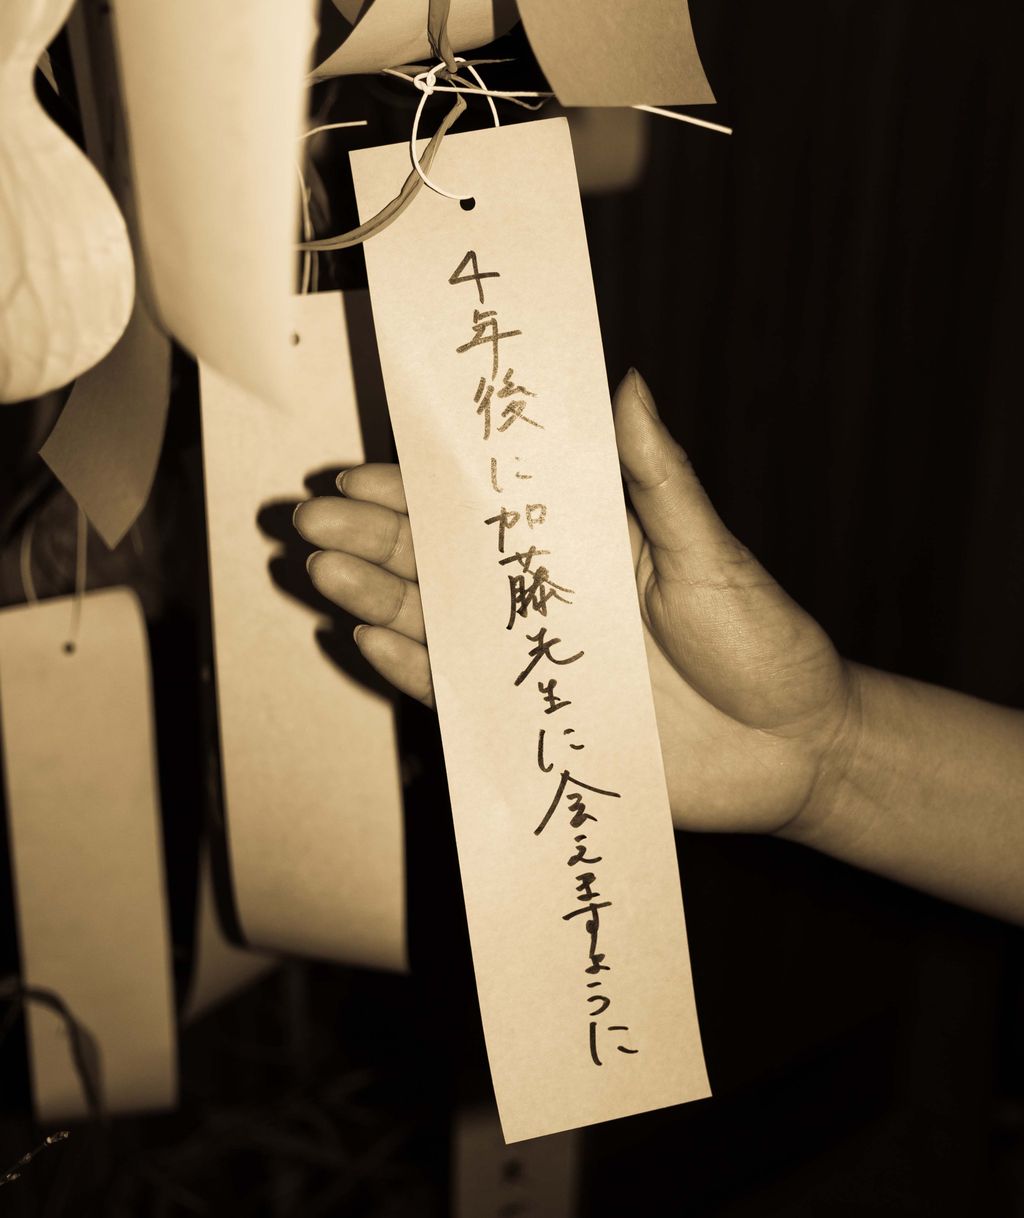 4年後に加藤先生に会えますように